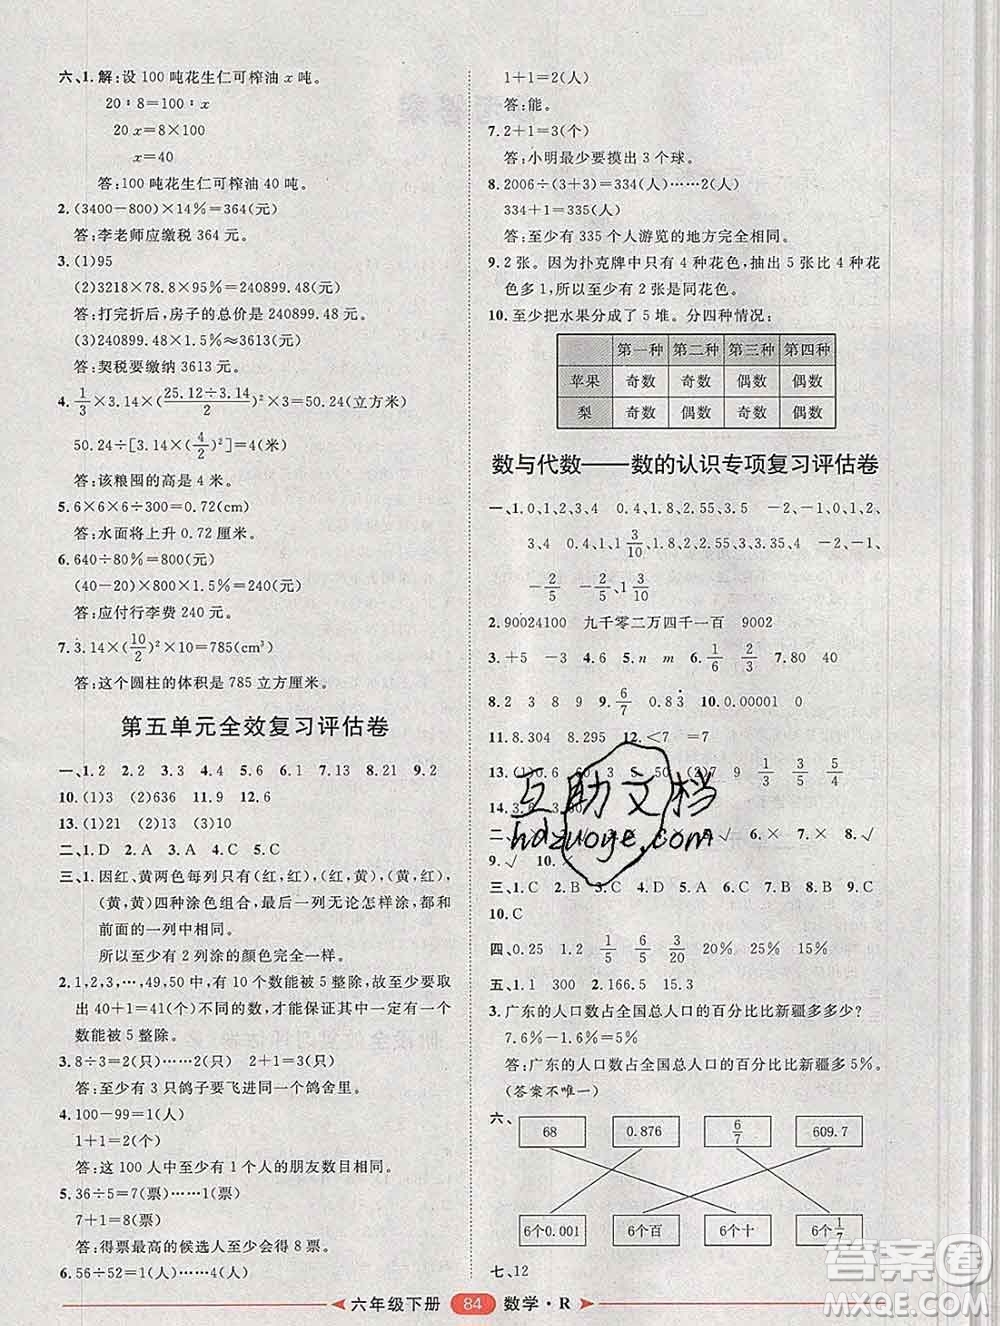 六、1.解:设 100 吨花生仁可榨油 x 吨。
20∶8=100∶x
20x=8×100
x=40
答:100 吨花生仁可榨油 40 吨。
2.(3400-800)×14%=364(元)
答:李老师应缴税 364 元。
3.(1)95
(2)3218×78.8×95%=240899.48(元)
答:打完折后,房子的总价是 240899.48 元。
(3)240899.48×1.5%≈3613(元)
答:契税要缴纳 3613 元。
4. 1/3×3.14×(25.12÷3.14/2)²×3=50.24(立方米)
50.24÷[3.14×(4/2)²]=4(米)
答:该粮囤的高是 4 米。
5.6×6×6÷300=0.72(cm)
答:水面将上升 0.72 厘米。
6.640÷80%=800(元)
(40-20)×800×1.5%=240(元)
答:应付行李费 240 元。
7.3.14×(10/2)²×10=785(cm³)
答:这个圆柱的体积是 785 立方厘米。
第五单元全效复习评估卷
一、1.2 2.2 3.3 4.4 5.6 6.1 7.13 8.21 9.2
10.(1)2 (2)636 11.9 12.6
13.(1)21 (2)4 (3)10
二、1.D 2.A 3.A 4.C 5.C
三、1.因红、黄两色每列只有(红,红),(红,黄),(黄,红),
(黄,黄)四种涂色组合,最后一列无论怎样涂,都和
前面的一列相同。
所以至少有 2 列涂的颜色完全一样。
2.1,2,3,…,49,50中,有 10 个数能被 5 整除,故至少要取
出 40+1=41(个)不同的数,才能保证其中一定有一个
数能被 5 整除。
3.8÷3=2(只)……2(只) 2+1=3(只)
答:至少有 3 只鸽子要飞进同一个鸽舍里。
4.100-99=1(人)
1+1=2(个)
答:这 100 人中至少有 1 个人的朋友数目相同。
5.36÷5=7(票)……1(票)
7+1=8(票)
答:得票最高的候选人至少得 8 票。
6.56÷52=1(人)……4(人)
1+1=2(人)
答:能。
7.2+1=3(个)
答:小明最少要摸出 3 个球。
8.2006÷(3+3)=334(人)……2(人)
334+1=335(人)
答:至少有 335 个人游览的地方完全相同。
9.2 张。因为扑克牌中只有 4 种花色,抽出 5 张比 4 种花
色多 1,所以至少有 2 张是同花色。
10.至少把水果分成了 5 堆。分四种情况:
第一种 第二种 第三种 第四种
苹果 奇数 奇数 偶数 偶数
梨 奇数 偶数 奇数 偶数
数与代数——数的认识专项复习评估卷
一、1.0,1,2,3,4 0.4,1.8,7.5 -2,-1,0,1,2,
3,4 0.4,1,3/10,1.8,2,3,4,7.5 -2,-1、
-2/5 -2/5,1,3/10
2.90024100 九千零二万四千一百 9002
3.+5 -3 4.6 5.n m 6.1/3 2/3 7.80 40
8.2 3 9.6/7 0.8̇3̇ 10.0.00001 0
11.8.304 8.295 12.<7 =7
13.(1)0.6 60 3 5 50 (2)7 9 1/3 3/5 5/4
14.3.6
6.× 7.× 8.√
9.√ 10.
三、1.C 2.B 3.C 4.D 5.A 6.C 7.B 8.D 9.A
10.C
四、0.25 1.2 1/5 6/5 3/20 20% 25% 15%
五、1.1 300 2.166.5 15.3
3.广东的人口数占全国总人口的百分比比新疆多多少?
7.6%-1.6%=5%
答:广东的人口数占全国总人口的百分比比新疆多5%。
(答案不唯一)
六、
68 0.876 6/7 609.7
6个0.001 6个百 6个十 6个1/7
七、12
互助文档
hdzuoye.com
答案圈
MXQE.COM
六年级下册 84 数学·R